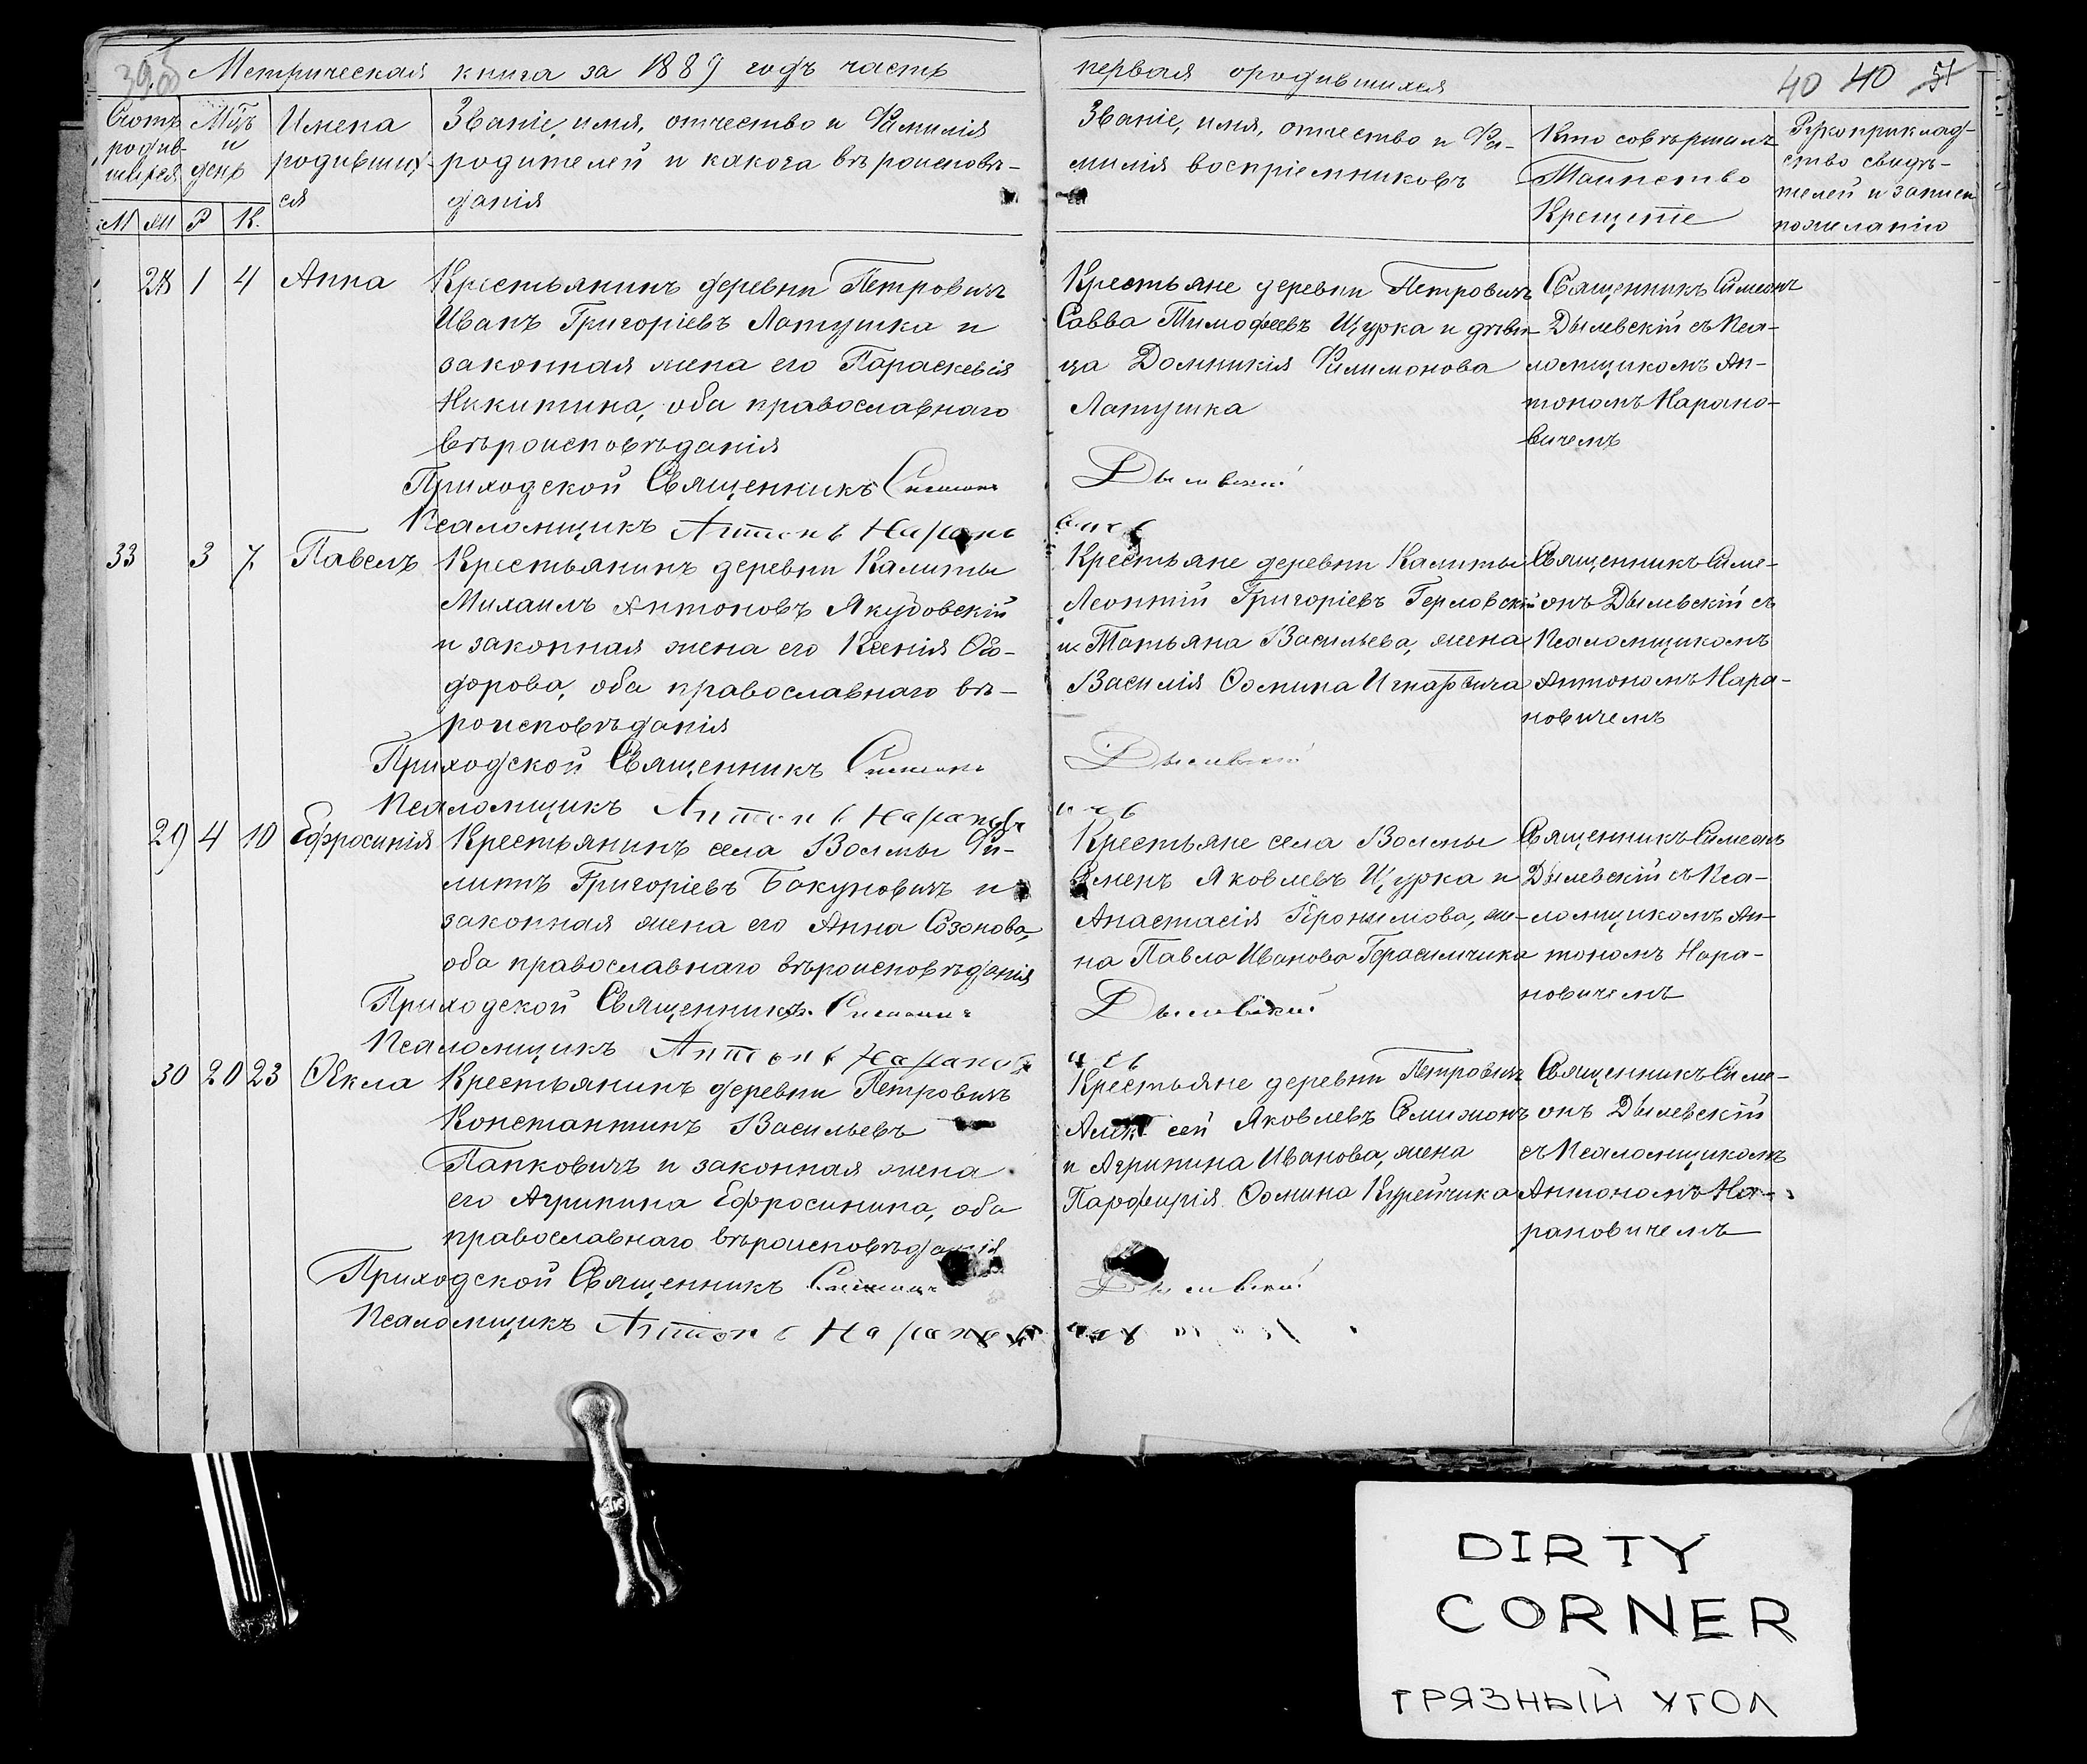 Метрическая книга за 1889 годъ часть
первая о родившихся
40 40 51
Счетъ
родив-
шихся
Мцъ
и
день
Имена
родивших-
ся
Званіе, имя, отчество и Фамилія
родителей и какога вѣроисповѣ-
данія
Званіе, имя, отчество и Фа-
милія воспріемниковъ
Кто совѣршилъ
Таинство
Крещеніе
Рукоприклад-
ство свидѣ-
телей и записи
по желанію
М Ж Р К.
28 1 4 Анна
Крестьянинъ деревни Петровичъ
Иванъ Григоріевъ Латушка и
законная жена его Параскевія
Никитина, оба православнаго
вѣроисповѣданія
Приходской Священникъ Симеонъ
Псаломщикъ Антонъ Нарано
Крестьяне деревни Петровичъ
Савва Тимофеевъ Щурка и дѣви-
ца Домникія Филимонова
Латушка
Дылевскій
вичъ
Священникъ Симеонъ
Дылевскій съ Пса-
ломщикомъ Ан-
тономъ Нарано-
вичемъ
33 3 7 Павелъ
Крестьянинъ деревни Калиты
Михаилъ Антоновъ Якубовскій
и законная жена его Ксенія Ѳео-
дорова, оба православнаго вѣ-
роисповѣданія
Приходской Священникъ Симеонъ
Псаломщикъ Антонъ Наранов
Крестьяне деревни Калиты
Леонтій Григоріевъ Герловскій
и Татьяна Васильева, жена
Василія Ѳомина Игнатовича
Дылевскій
ичъ
Священникъ Симе-
онъ Дылевскій съ
Псаломщикомъ
Антономъ Нара-
новичемъ
29 4 10 Ефросинія
Крестьянинъ села Волмы Фи-
липпъ Григоріевъ Бакуновичъ и
законная жена его Анна Созонова,
оба православнаго вѣроисповѣданія
Приходской Священникъ Симеонъ
Псаломщикъ Антонъ Наранов
Крестьяне села Волмы
Семенъ Яковлевъ Щурка и
Анастасія Іеронимова, же-
на Павла Иванова Герасимчика
Дылевскій
ичъ
Священникъ Симеонъ
Дылевскій съ Пса-
ломщикомъ Ан-
тономъ Нара-
новичемъ
30 20 23 Ѳекла
Крестьянинъ деревни Петровичъ
Константинъ Васильевъ
Папковичъ и законная жена
его Агрипина Ефросинина, оба
православнаго вѣроисповѣданія
Приходской Священникъ Симеонъ
Псаломщикъ Антонъ Наранов
Крестьяне деревни Петровичъ
Алексей Яковлевъ
и Агрипина Иванова, жена
Парфирія Ѳомина Курейчика
Дылевскій
ичъ
Священникъ Симе-
онъ Дылевскій
съ Псаломщикомъ
Антономъ На-
рановичемъ
DIRTY
CORNER
ГРЯЗНЫЙ УГОЛ